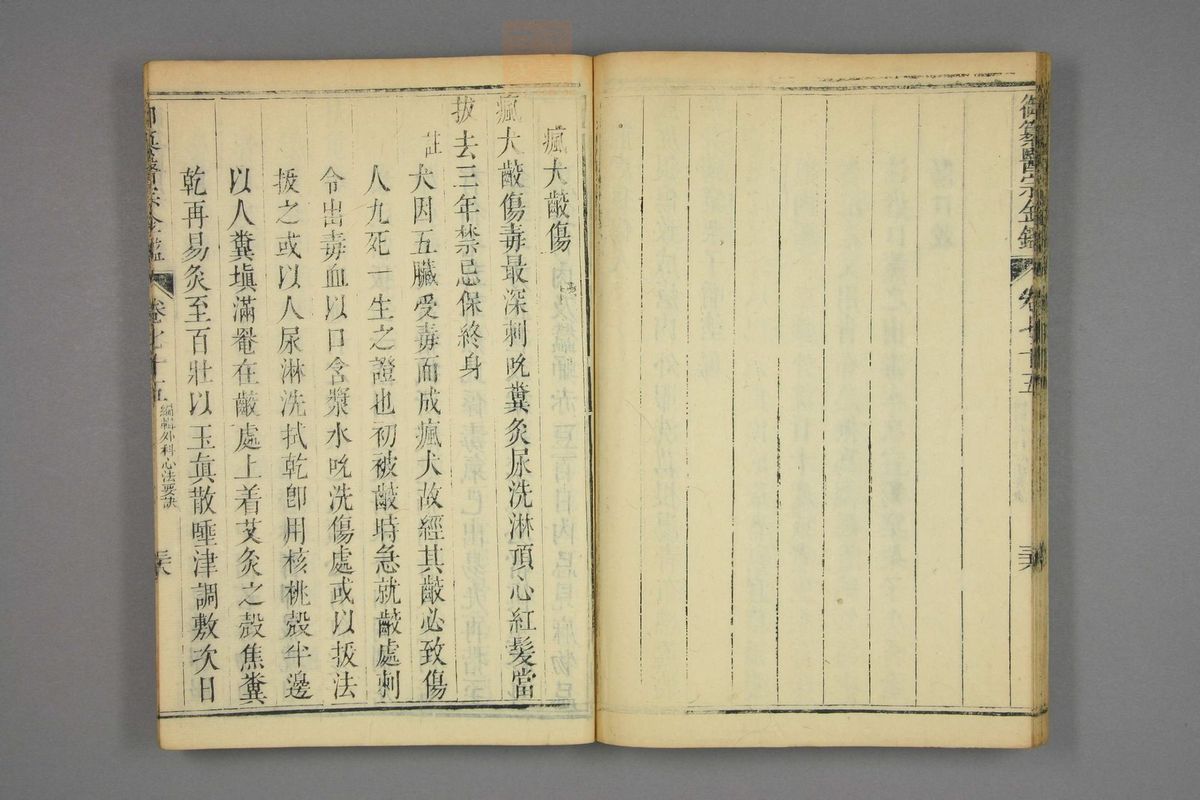 御纂醫宗金鑑
卷七十五
三六
瘋犬齩傷
瘋犬齩傷毒最深刺吮糞灸尿洗淋頂心紅髮當
拔去三年禁忌保終身
註
犬因五臟受毒而成瘋犬故經其齩必致傷
人九死一生之證也初被齩時急就齩處刺
令出毒血以口含漿水吮洗傷處或以拔法
拔之或以人尿淋洗拭乾卽用核桃殼半邊
以人糞塡滿罨在齩處上着艾灸之殼焦糞
乾再易灸至百壯以玉眞散唾津調敷次日
御纂醫宗金鑑
卷七十五
編輯外科心法要訣
三六